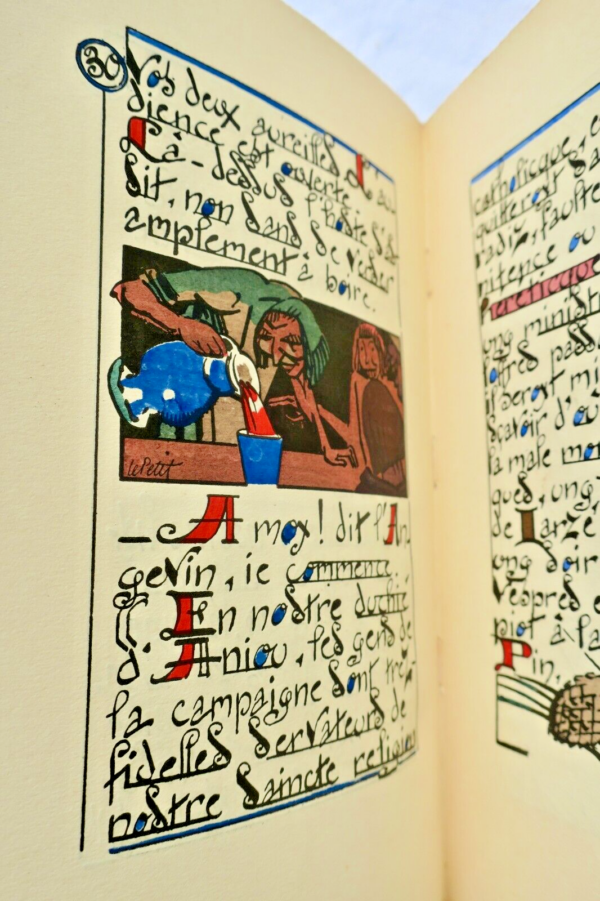 30
Vos deux aureilles L'au
dience est ouverte
Là-dessus l'hoste s'as
sit, non sans se verser
amplement à boire.
lePetit
— A moy ! dit l'An
gevin, ie commence
En nostre duchié
d'Aniou, les gens de
la campaigne sont très
fidelles servateurs de
nostre saincte religion
catholicque, e
quitteront
radiz, faultre
nitence ou
heretique
ung ministr
offres pass
il seroit mi
sçavoir d'ou
la male mo
ques, ung
de Larze
ung soir
Vespres e
piot à la
Pin,